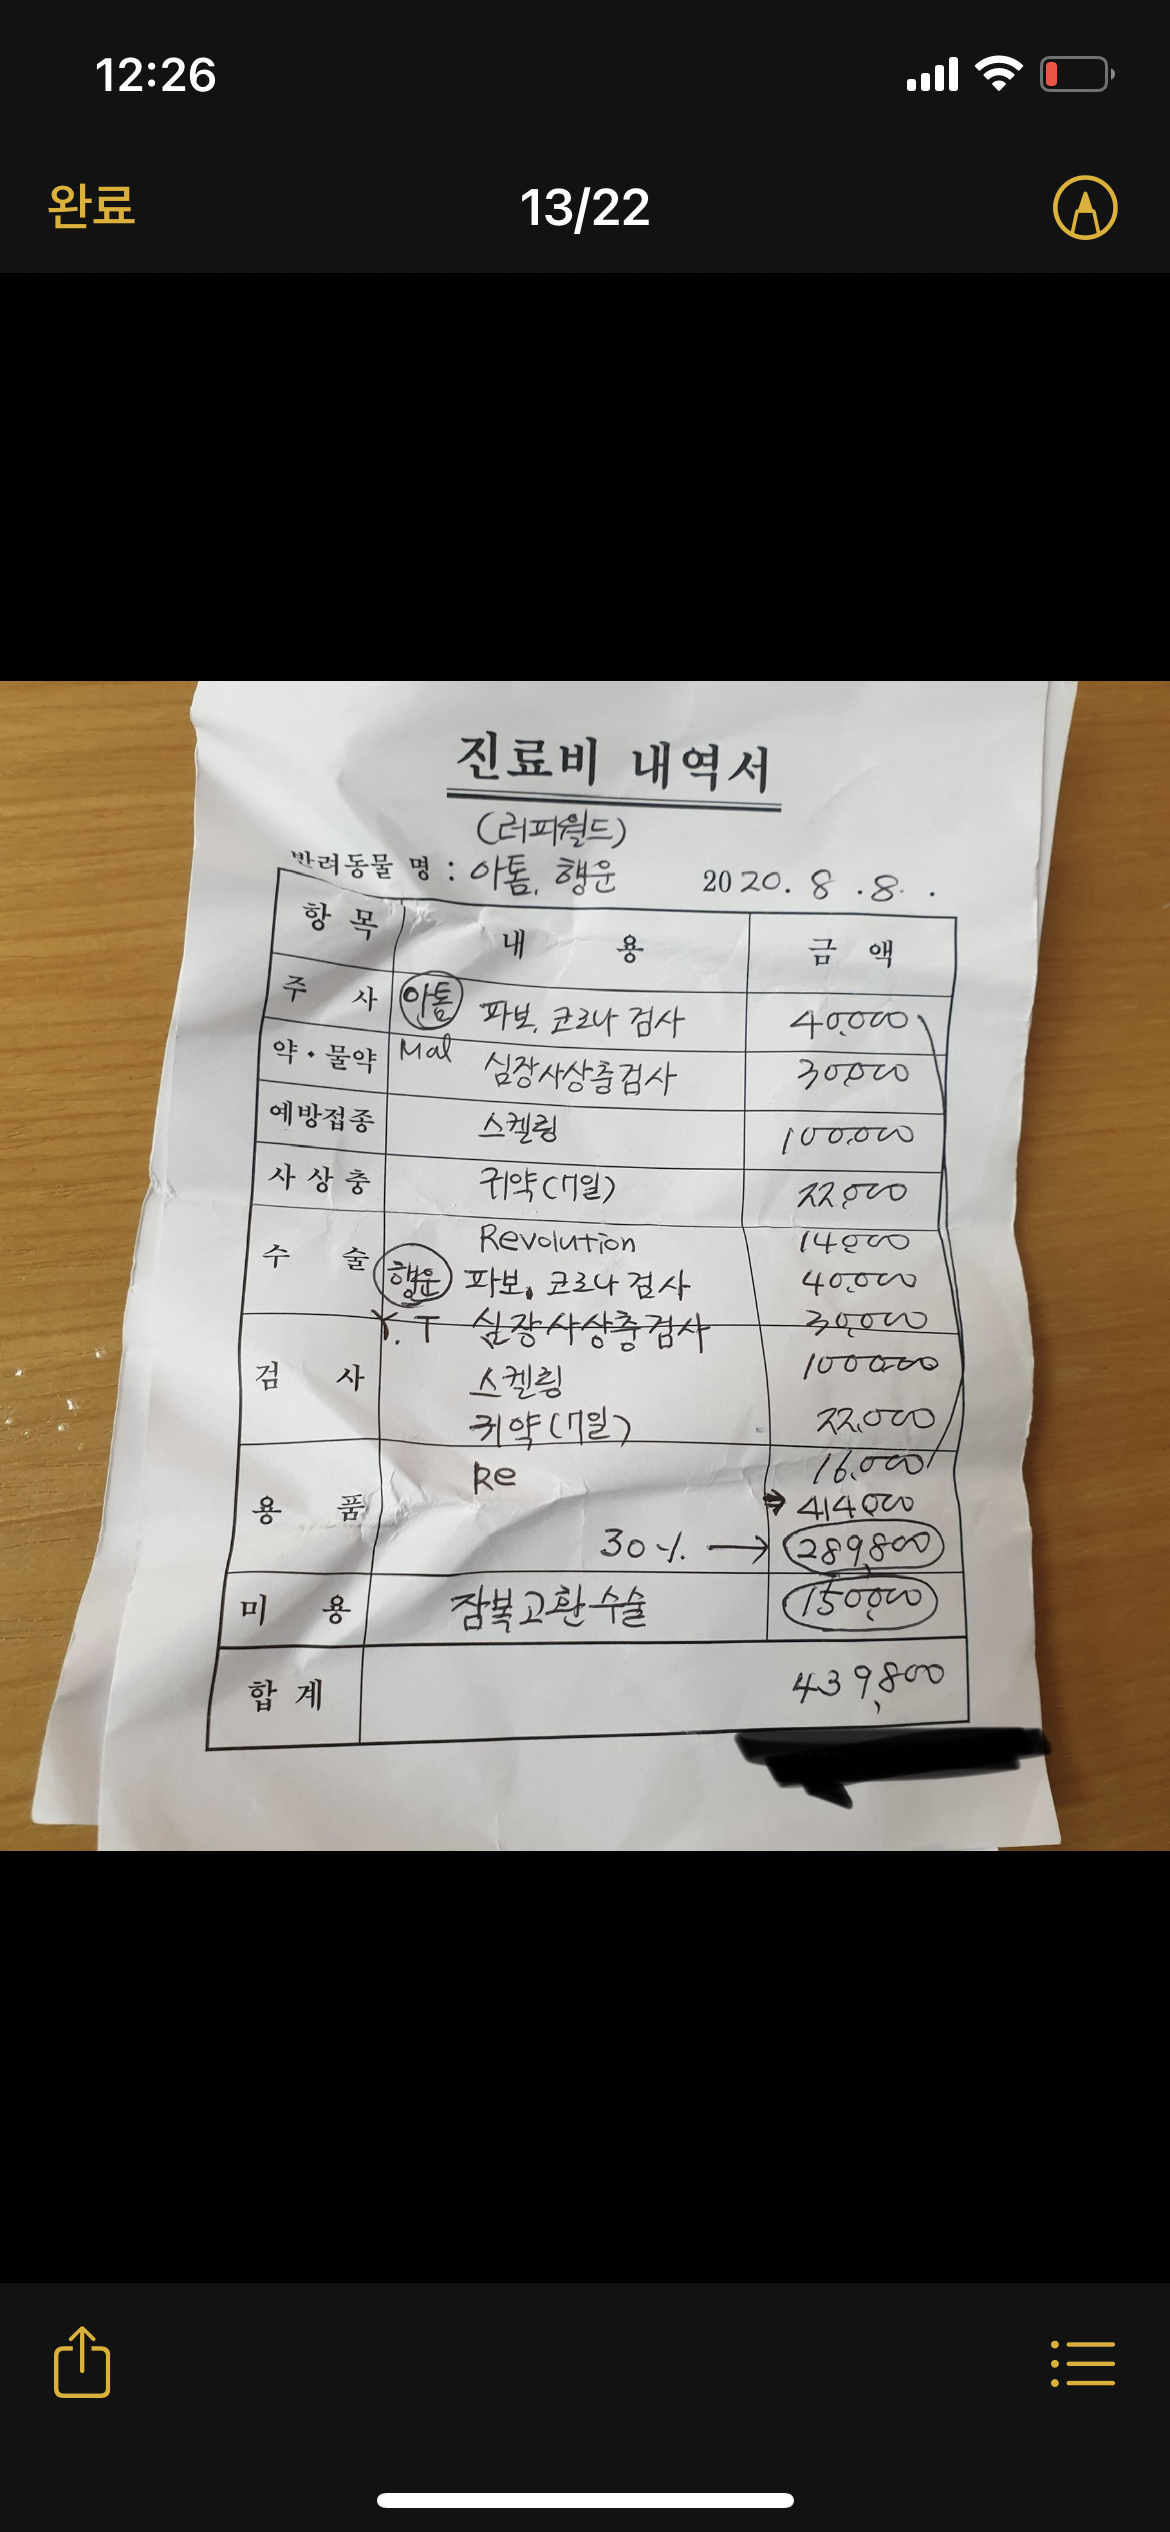 12:26
완료 13/22
진료비 내역서
(러피월드)
반려동물 명 : 아톰, 행운 2020. 8 . 8 .
항 목 내 용 금 액
주 사 아톰 파보, 코로나 검사 40,000
약 · 물약 Mal 심장사상충검사 30,000
예방접종 스켈링 100,000
사 상 충 귀약(7일) 22,000
Revolution 14,000
수 술 행운 파보, 코로나 검사 40,000
Y. T 심장사상충검사 30,000
검 사 스켈링 100,000
귀약(7일) 22,000
Re 16,000
용 품 → 414,000
30% → 289,800
미 용 잠복고환수술 150,000
합 계 439,800